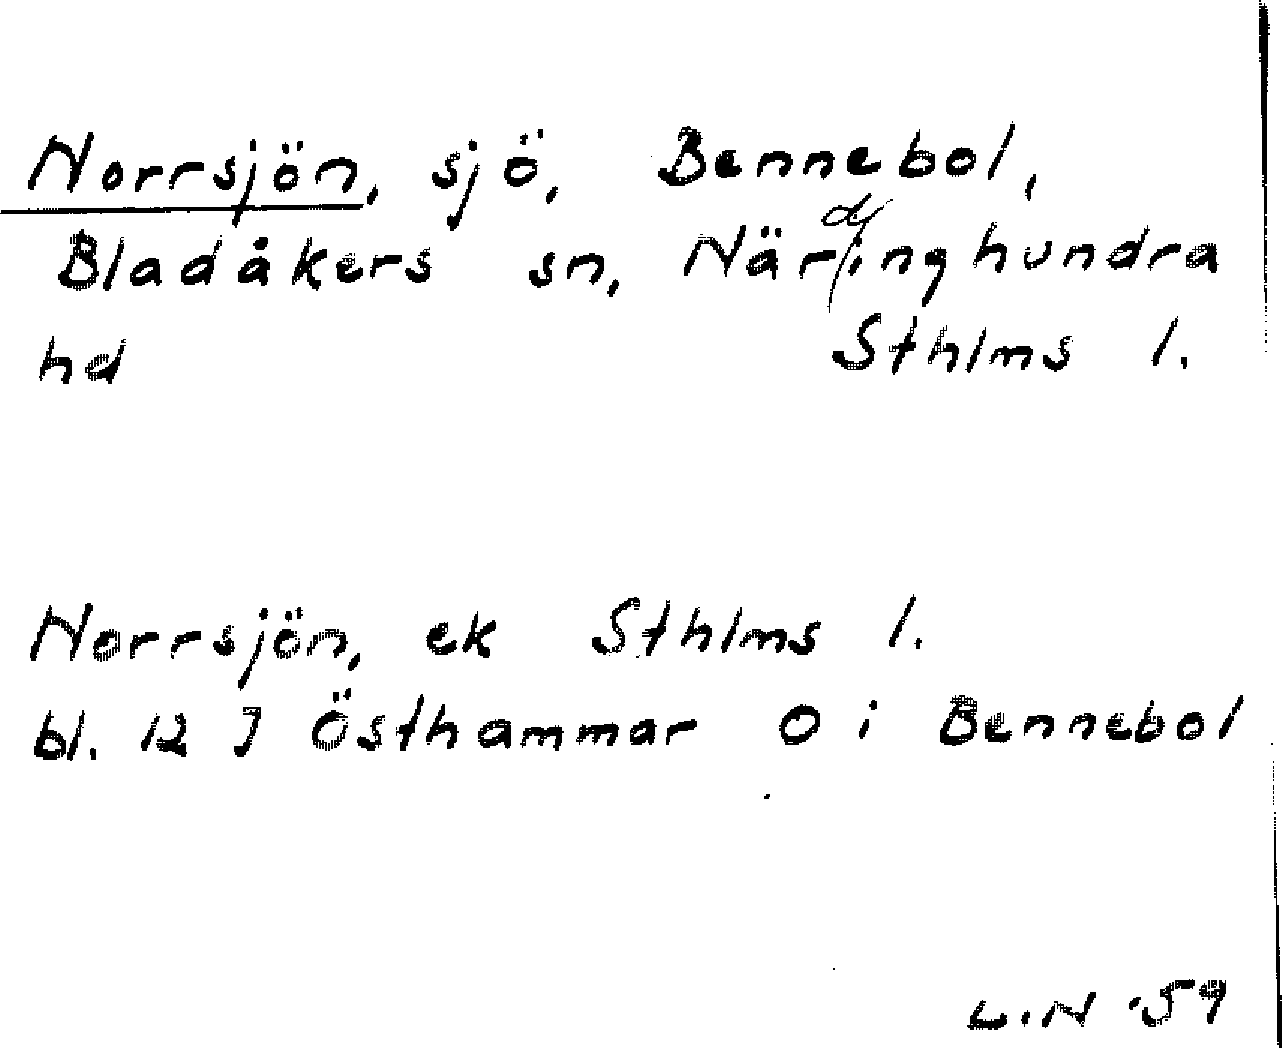 Norrsjön, sjö, Bennebol,
Bladåkers sn, Närdinghundra
hd Sthlms l.
Norrsjön, ek Sthlms l.
bl. 12 J Östhammar O i Bennebol
L.N -59